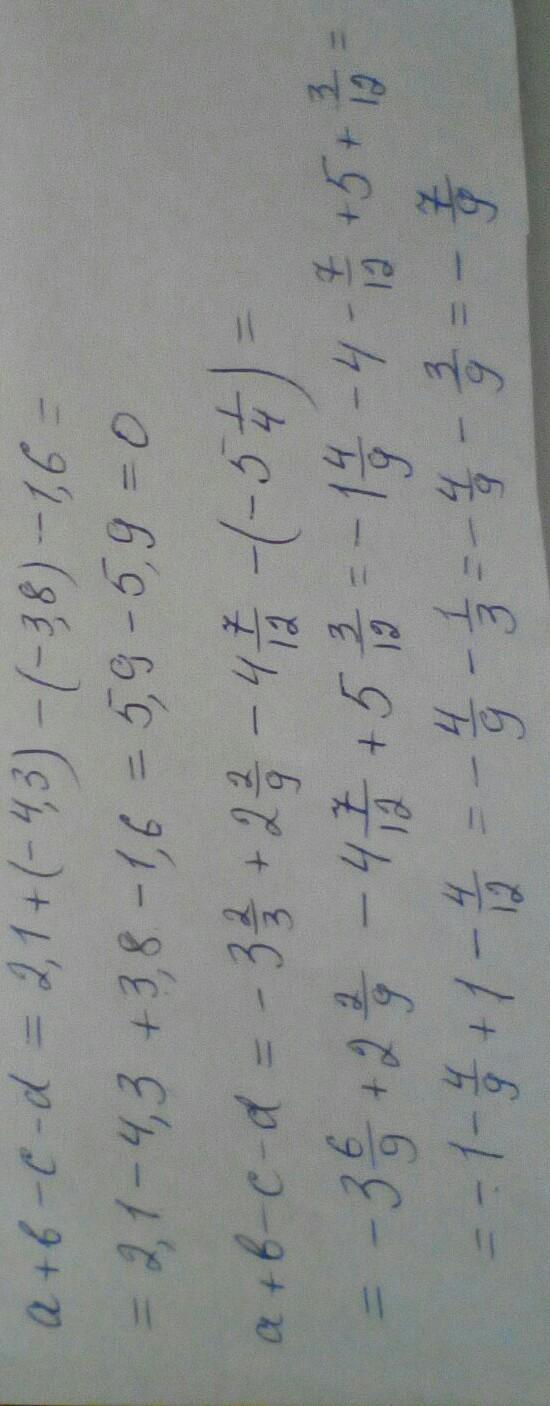 a + b - c - d = 2,1 + (-4,3) - (-3,8) - 1,6 =
= 2,1 - 4,3 + 3,8 - 1,6 = 5,9 - 5,9 = 0
a + b - c - d = - 3 2/3 + 2 2/9 - 4 7/12 - (- 5 1/4) =
= - 3 6/9 + 2 2/9 - 4 7/12 + 5 3/12 = - 1 4/9 - 4 - 7/12 + 5 + 3/12 =
= - 1 - 4/9 + 1 - 4/12 = - 4/9 - 1/3 = - 4/9 - 3/9 = - 7/9